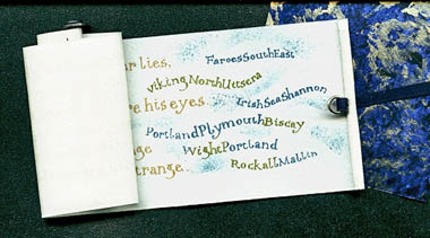 r lies, FaroesSouthEast
VikingNorthUtsera
re his eyes. IrishSeaShannon
PortlandPlymouthBiscay
ge WightPortland
trange. RockallMallin